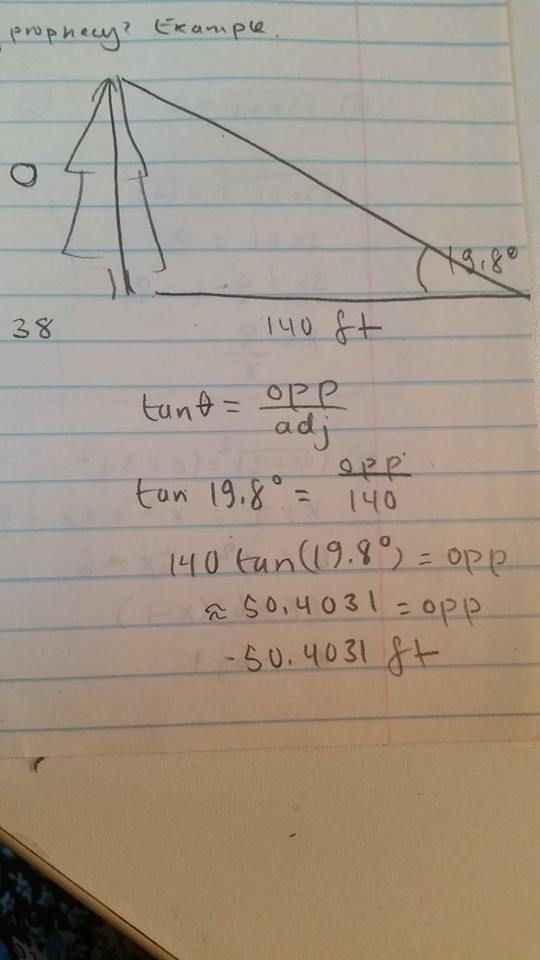 prophecy? Example.
O
19.8°
38
140 ft
tanθ = opp/adj
tan 19.8° = opp/140
140 tan(19.8°) = opp
≈ 50.4031 = opp
-50.4031 ft